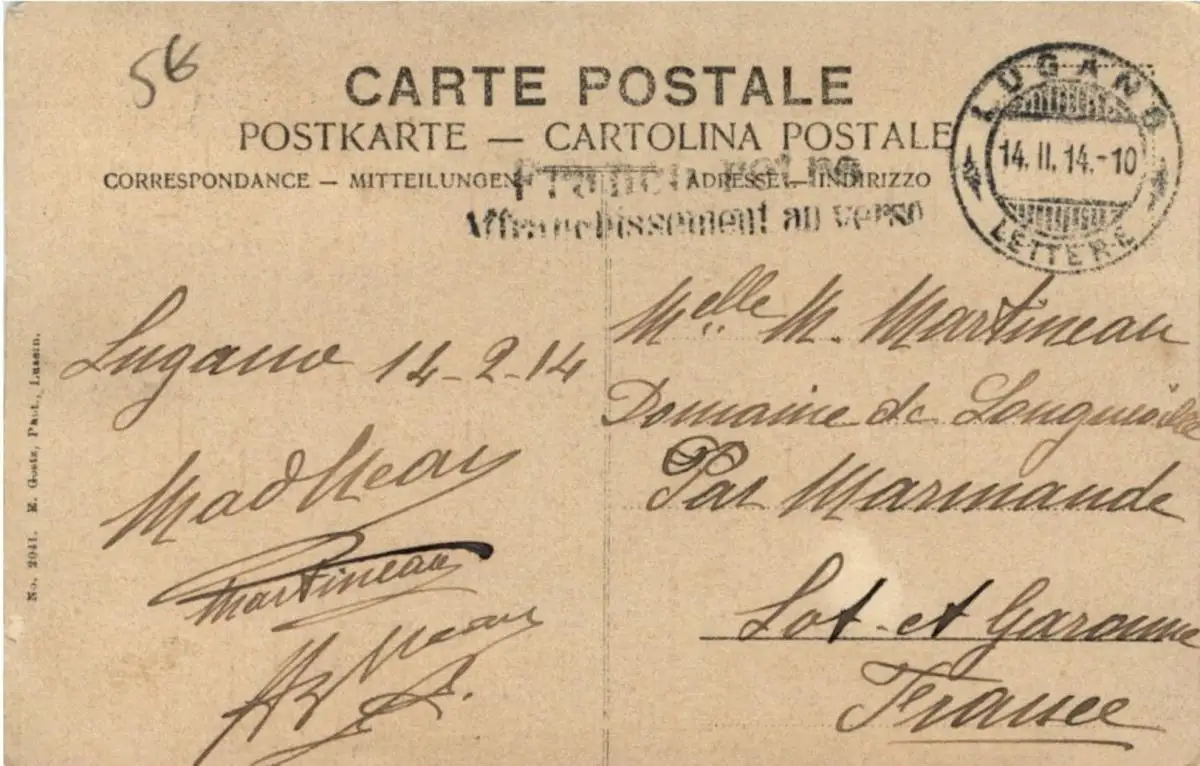 5€
CARTE POSTALE
POSTKARTE — CARTOLINA POSTALE
CORRESPONDANCE — MITTEILUNGEN
ADRESSE — INDIRIZZO
Affranchissement au verso
LUGANO
14.II.14.-10
LETTERE
Lugano 14-2-14
Martineau
Melle M. Martineau
Domaine de
Par Marmande
Lot et Garonne
France
No. 2041. E. Goetz, Luzern.